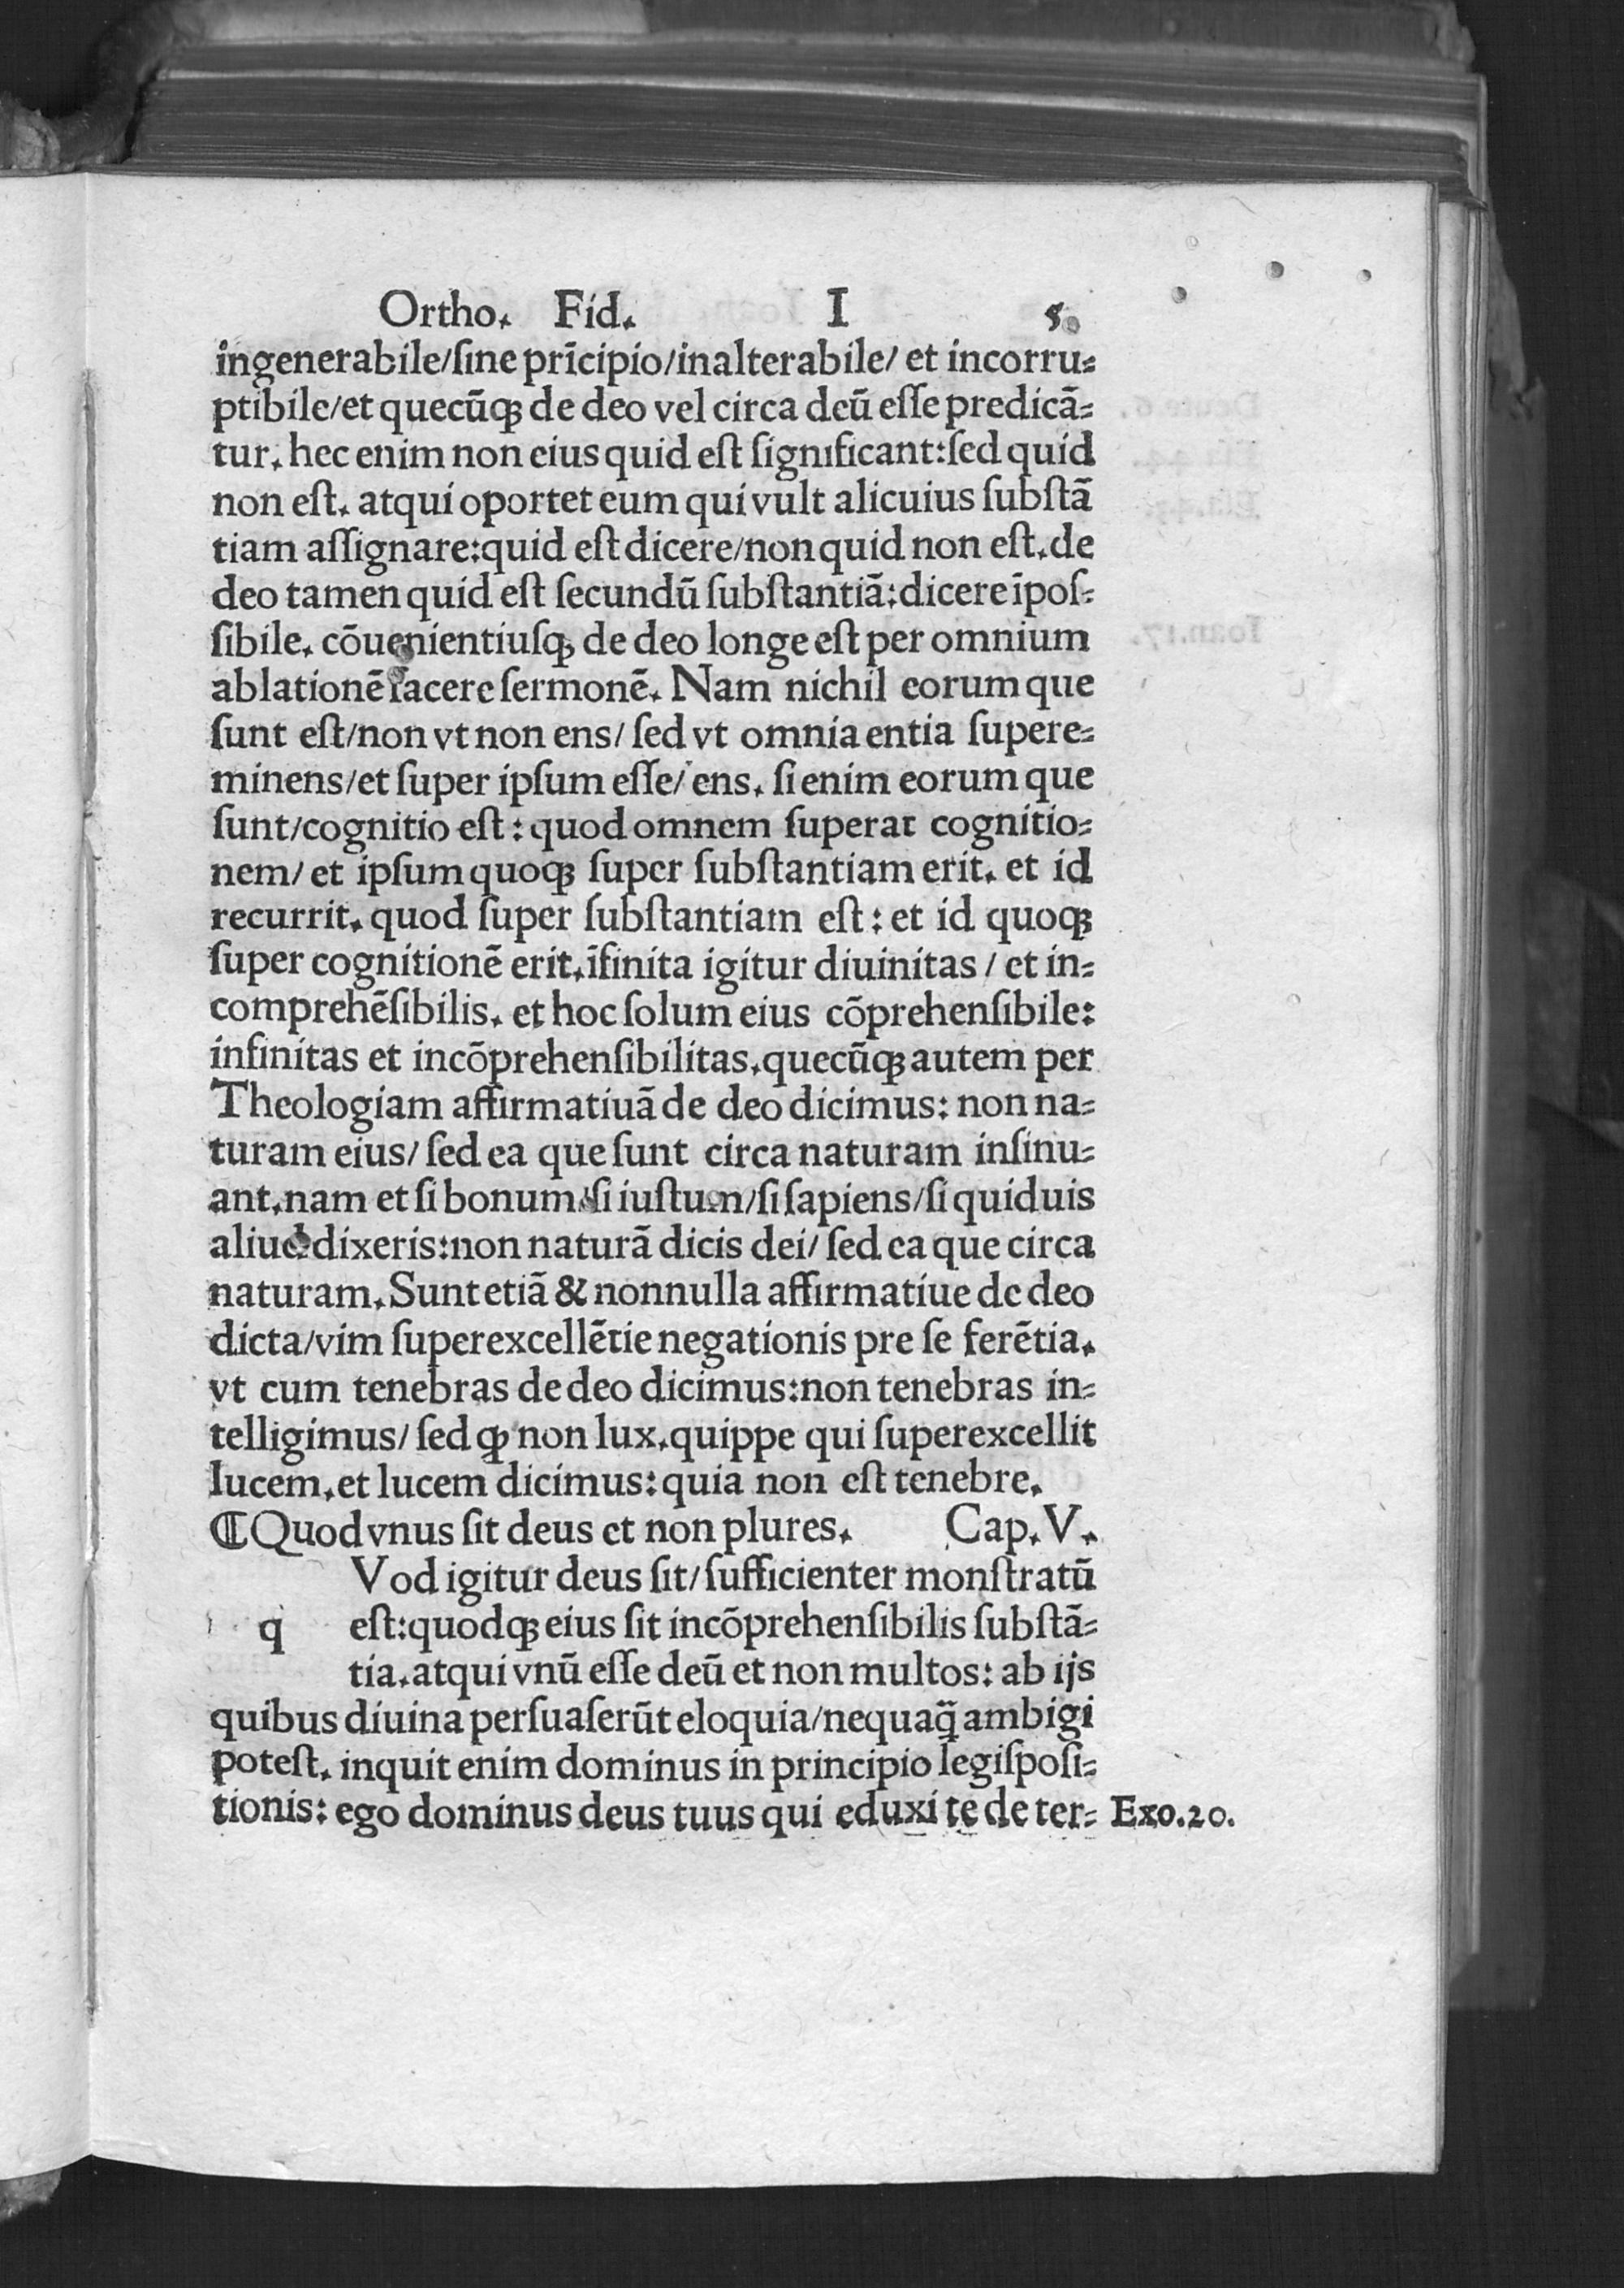 Ortho. Fid. I 5.
ingenerabile/ſine prĩcipio/inalterabile/ et incorru⸗
ptibile/et quecũqꝫ de deo vel circa deũ eſſe predicã⸗
tur. hec enim non eius quid eſt ſignificant:ſed quid
non eſt. atqui oportet eum qui vult alicuius ſubſtã
tiam aſſignare:quid eſt dicere/non quid non eſt. de
deo tamen quid eſt ſecundũ ſubſtantiã:dicere ĩpoſ⸗
ſibile. cõuenientiuſqꝫ de deo longe eſt per omnium
ablationẽ facere ſermonẽ. Nam nichil eorum que
ſunt eſt/non vt non ens/ ſed vt omnia entia ſupere⸗
minens/et ſuper ipſum eſſe/ ens. ſi enim eorum que
ſunt/cognitio eſt: quod omnem ſuperat cognitio⸗
nem/ et ipſum quoqꝫ ſuper ſubſtantiam erit. et id
recurrit. quod ſuper ſubſtantiam eſt: et id quoqꝫ
ſuper cognitionẽ erit. ĩfinita igitur diuinitas / et in⸗
comprehẽſibilis. et hoc ſolum eius cõprehenſibile:
infinitas et incõprehenſibilitas. quecũqꝫ autem per
Theologiam affirmatiuã de deo dicimus: non na⸗
turam eius/ ſed ea que ſunt circa naturam inſinu⸗
ant. nam et ſi bonum/ſi iuſtum/ſi ſapiens/ſi quiduis
aliud dixeris:non naturã dicis dei/ ſed ea que circa
naturam. Sunt etiã & nonnulla affirmatiue de deo
dicta/vim ſuperexcellẽtie negationis pre ſe ferẽtia.
vt cum tenebras de deo dicimus:non tenebras in⸗
telligimus/ ſed ꝙ non lux. quippe qui ſuperexcellit
lucem. et lucem dicimus: quia non eſt tenebre.
⸿Quod vnus ſit deus et non plures. Cap. V.
Vod igitur deus ſit/ ſufficienter monſtratũ
q eſt:quodqꝫ eius ſit incõprehenſibilis ſubſtã⸗
tia. atqui vnũ eſſe deũ et non multos: ab ijs
quibus diuina perſuaſerũt eloquia/nequaq̃ ambigi
poteſt. inquit enim dominus in principio legiſpoſi⸗
tionis: ego dominus deus tuus qui eduxi te de ter⸗ Exo.20.